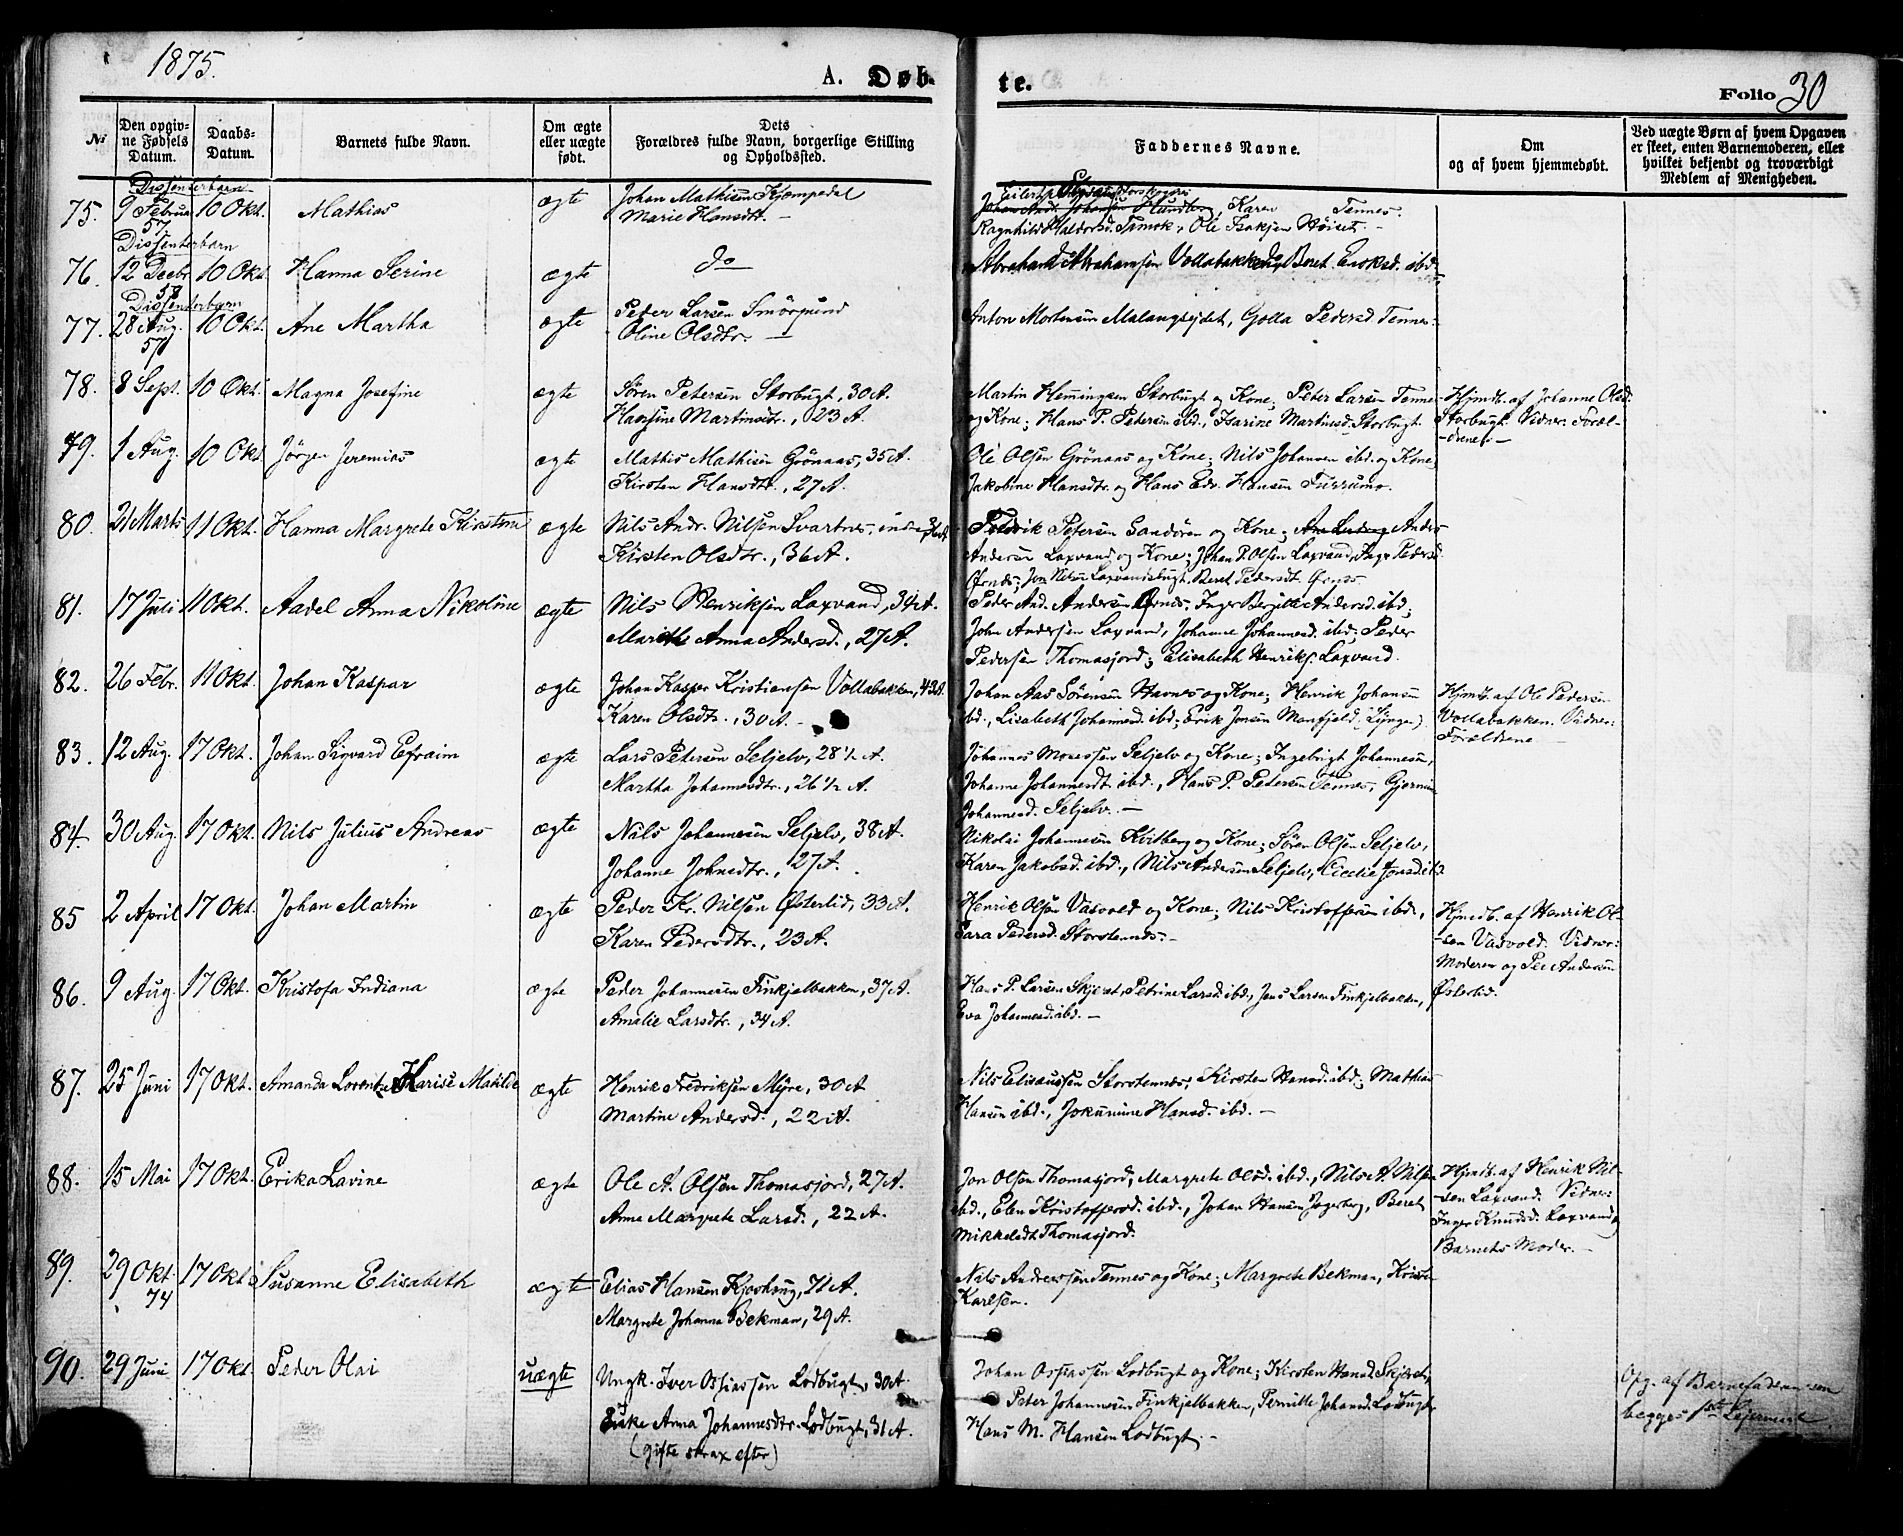 1875.
A. Døb-
te.
Folio 30
No
Den opgiv-
ne Fødsels
Datum.
Daabs-
Datum.
Barnets fulde Navn.
Om ægte
eller uægte
født.
Dets
Forældres fulde Navn, borgerlige Stilling
og Opholdssted.
Faddernes Navne.
Om
og af hvem hjemmedøbt.
Ved uægte Børn af hvem Opgaven
er skeet, enten Barnemoderen, eller
hvilket bekjendt og troværdigt
Medlem af Menigheden.
Dissenterbarn
75. 9 Februar 10 Okt. Mathias ægte Johan Mathisen Kjempedal
57
Marie Hansdtr. —
Karen Tennes.
Ragnhild Haldorsd. Tamok, Ole Isaksen Høiset. —
Dissenterbarn
76. 12 Decbr. 10 Okt. Hanna Serine ægte do
58
Abraham Abrahamsen Vollabakken, Beret Enoksd. ibd.
Dissenterbarn
77. 28 Aug. 10 Okt. Ane Martha ægte Peter Larsen Smörsund
57
Oline Olsdtr. —
Anton Mortensen Malangseidet, Golla Pedersd. Tennes.
78. 8 Sept. 10 Okt. Magna Josefine ægte Sören Petersen Storbugt, 30 A.
Hansine Martinsdtr., 23 A.
Martin Hemmingsen Storbugt og Kone; Peter Larsen Tennes
og Kone; Hans P. Petersen ibd., Isarine Martinsd. Storbugt
Hjmdb. af Johanne Olsd.
Storbugt. Vidner: Foræl-
-drene. —
79. 1 Aug. 10 Okt. Jörgen Jeremias ægte Mathis Mathisen Grönaas, 35 A.
Kirsten Hansdtr., 27 A.
Ole Olsen Grönaas og Kone; Nils Johansen ibd. og Kone,
Jakobine Hansdtr. og Hans Edv. Hansen Furrumo.
80. 21 Marts 11 Okt. Hanna Margrete Kirstine ægte Nils Andr. Nilsen Svartnes, indre, 36 A.
Kirsten Olsdtr., 36 A.
Fredrik Petersen Sandören og Kone; Anders
Andersen Laxvand og Kone; Johan P. Olsen Laxvand, Inger Pedersd.
Örnes; Jon Nilsen Laxvandsbugt, Beret Pedersdt. Örnes.
81. 17 Juli 11 Okt. Aadel Anna Nikoline ægte Nils Henriksen Laxvand, 34 A.
Marith Anna Andersd., 27 A.
Peder And. Andersen Örnes, Inger Bergitte Andersd. ibd;
John Andersen Laxvand, Johanna Johannesd. ibd; Peder
Pedersen Thomasjord; Elisabeth Henriks. Laxvand.
82. 26 Febr. 11 Okt. Johan Kaspar ægte Johan Kasper Kristiansen Vollabakken, 43 A.
Karen Olsdtr., 30 A. —
Johan Aas Sörensen Havnes og Kone; Henrik Johansen
ibd., Lisabeth Johannesd. ibd; Erik Jonsen Manfjeld (Lyngen)
Hjmdb. af Ole Pedersen
Vollabakken. Vidner:
Forældrene —
83. 12 Aug. 17 Okt. Johan Sigvard Efraim ægte Lars Petersen Seljelv, 28 1/2 A.
Martha Johannesdtr., 26 1/2 A.
Johannes Monsen Seljelv og Kone; Ingebrigt Johannesen,
Johanne Johannesdt. ibd., Hans P. Petersen Tennes,
Johannesd. Seljelv. —
84. 30 Aug. 17 Okt. Nils Julius Andreas ægte Nils Johannesen Seljelv, 38 A.
Johanne Johnsdtr., 27 A.
Nikolai Johannesen Kvitberg og Kone; Sören Olsen Seljelv,
Karen Jakobsd. ibd., Nils Andersen Seljelv, Cecelie Jonsd. ibd
85 2 April 17 Okt. Johan Martin ægte Peder Kr. Nilsen Österlid, 33 A.
Karen Pedersdtr., 23 A.
Henrik Olsen Vasvold og Kone; Nils Kristoffersen ibd.,
Sara Pedersd. Storstennes. —
Hjmdb. af Henrik Ol-
-sen Vasvold. Vidner:
Moderen og Per Andersen
Österlid.
86. 9 Aug. 17 Okt. Kristofa Indiana ægte Peder Johannesen Finkjelbakken, 37 A.
Amalie Larsdtr., 34 A.
Hans P. Larsen Skjeret, Petrine Larsd. ibd., Jens Larsen Finkjelbakken,
Eva Johannesd. ibd. —
87. 25 Juni 17 Okt. Amanda Lorentse Karise Matilde ægte Henrik Fredriksen Myre, 30 A
Martine Andersd., 22 A.
Nils Elisæussen Storstennes, Kirsten Hansd. ibd; Mathias
Hansen ibd., Jokumine Hansd. ibd. —
88. 15 Mai 17 Okt. Erika Lavine ægte Ole A. Olsen Thomasjord, 27 A.
Anne Margrete Larsd., 22 A.
Jon Olsen Thomasjord, Margrete Olsd. ibd., Nils A. Nilsen
ibd., Elen Kristoffersd. ibd., Johan Hansen Jagerberg, Beret
Mikkelsdt Thomasjord.
Hjmdb. af Henrik Nil-
-sen Laxvand. Vidner:
Inger Knudsd. Laxvand og
Barnets Moder. —
89. 29 Okt. 17 Okt. Susanne Elisabeth ægte Elias Hansen Kjoshaug, 71 A.
74
Margrete Johanna Bekman, 29 A.
Nils Andreassen Tennes og Kone; Margrete Bekman,
Karlsen.
90. 29 Juni 17 Okt. Peder Olai uægte Ungk. Iver Ossiassen Lodbugt, 30 A.
Enke Anna Johannesdtr. Lodbugt, 31 A.
(gifte strax efter)
Johan Ossiassen Lodbugt og Kone; Kirsten Hansd. Skjeret,
Peter Johannesen Finkjelbakken, Pernille Johansd. Lodbugt
Hans M. Hansen Lodbugt. —
Opg. af Barnefaderen som
begges 1ste Leiermaal